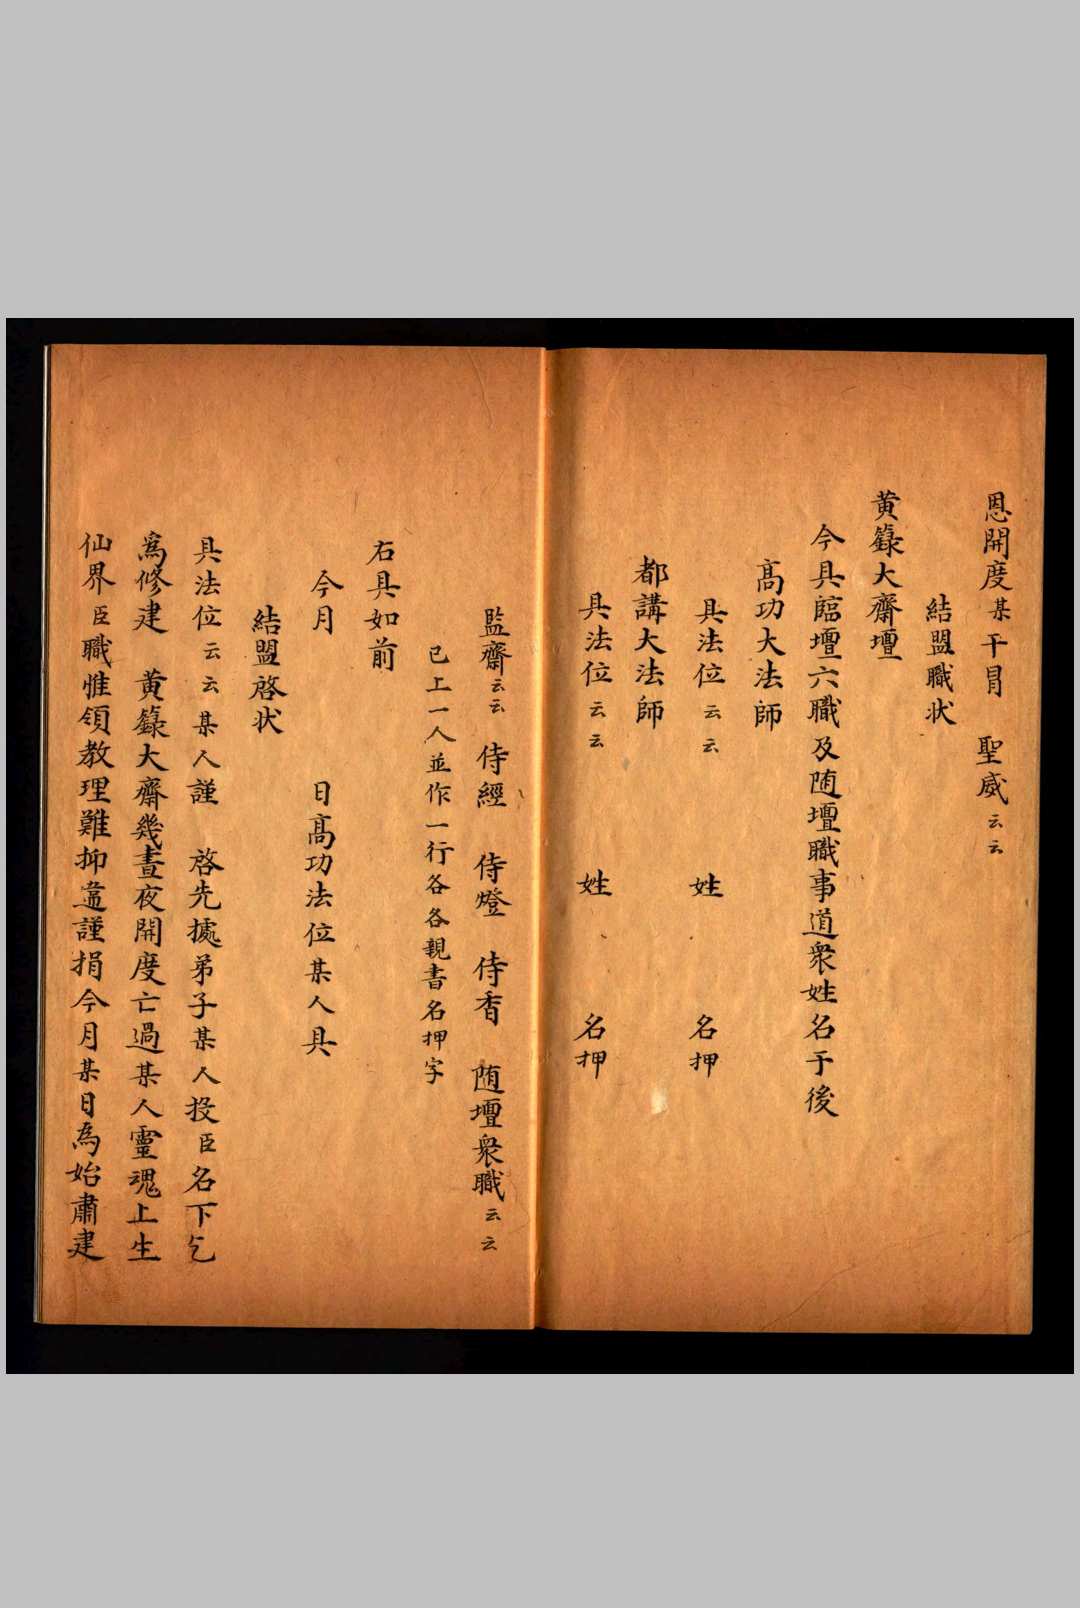 恩開度某干冐　聖威云云
結盟職状
黄籙大齋壇
今具臨壇六職及随壇職事道衆姓名于後
髙功大法師
具法位云云　姓　名押
都講大法師
具法位云云　姓　名押
監齋云云　侍經　侍燈　侍香　随壇衆職云云
已上一人並作一行各各親書名押字
右具如前
今月　日髙功法位某人具
結盟啓状
具法位云云某人謹　啓先據弟子某人投臣名下乞
爲修建　黄籙大齋幾晝夜開度亡過某人靈魂上生
仙界臣職惟領教理難抑違謹捐今月某日為始肅建